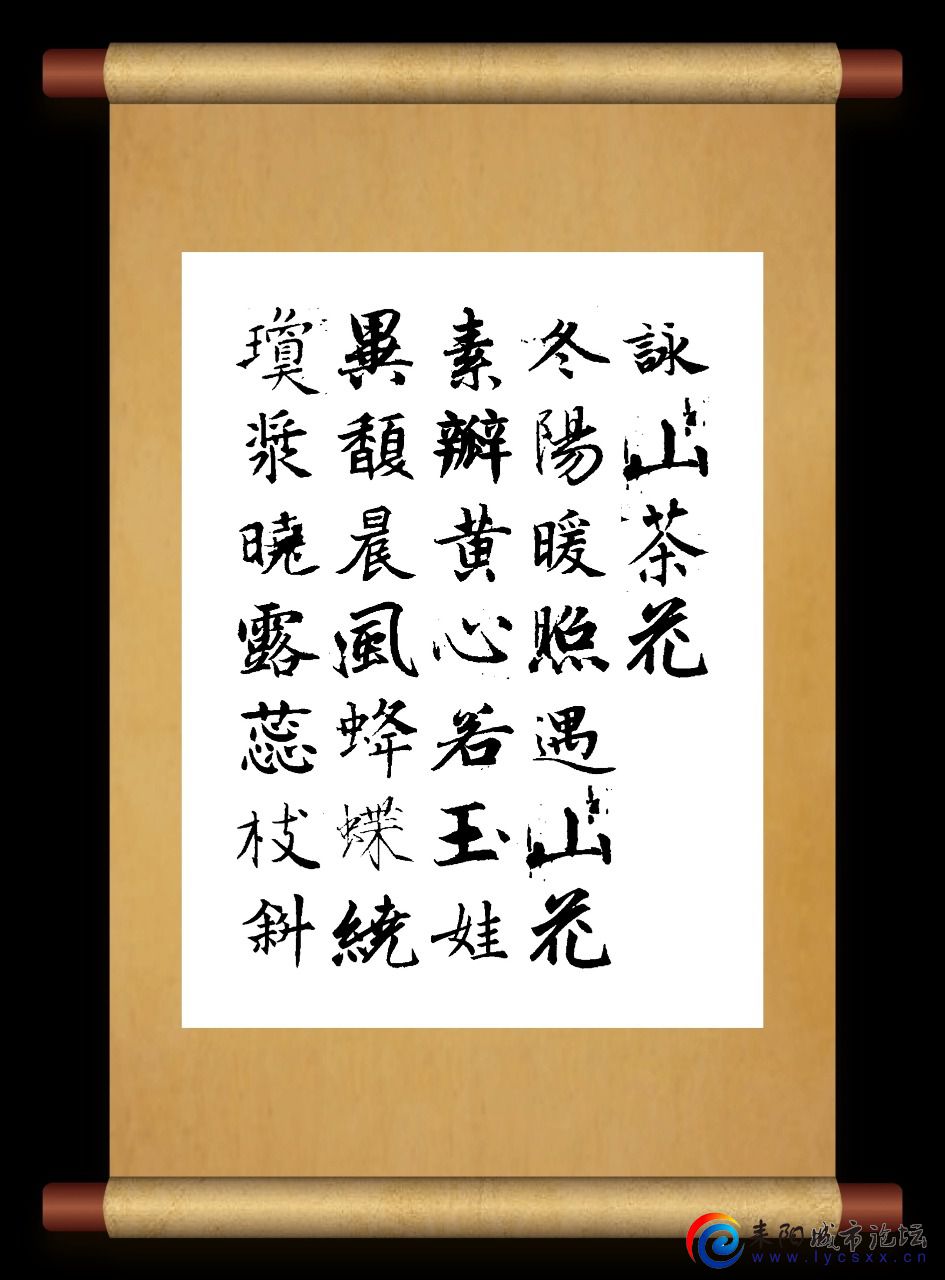 詠山茶花
冬陽暖照遇山花
素瓣黄心若玉娃
異馥晨風蜂蝶繞
瓊漿曉露蕊枝斜
耒阳城市论坛
www.lycsxx.cn